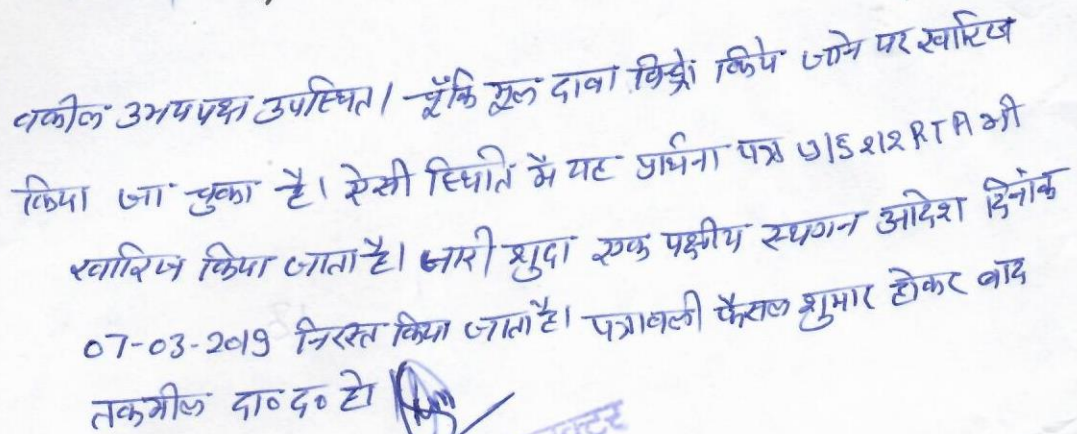 वकील उभयपक्ष उपस्थित। चूँकि मूल दावा विड्रो किये जाने पर खारिज
किया जा चुका है। ऐसी स्थिति मे यह प्रार्थना पत्र U/S 212 RTA भी
खारिज किया जाता है। जारी शुदा एक पक्षीय स्थगन आदेश दिनांक
07-03-2019 निरस्त किया जाता है। पत्रावली फैसल शुमार होकर बाद
तकमील दा० द० हो।
क्टर